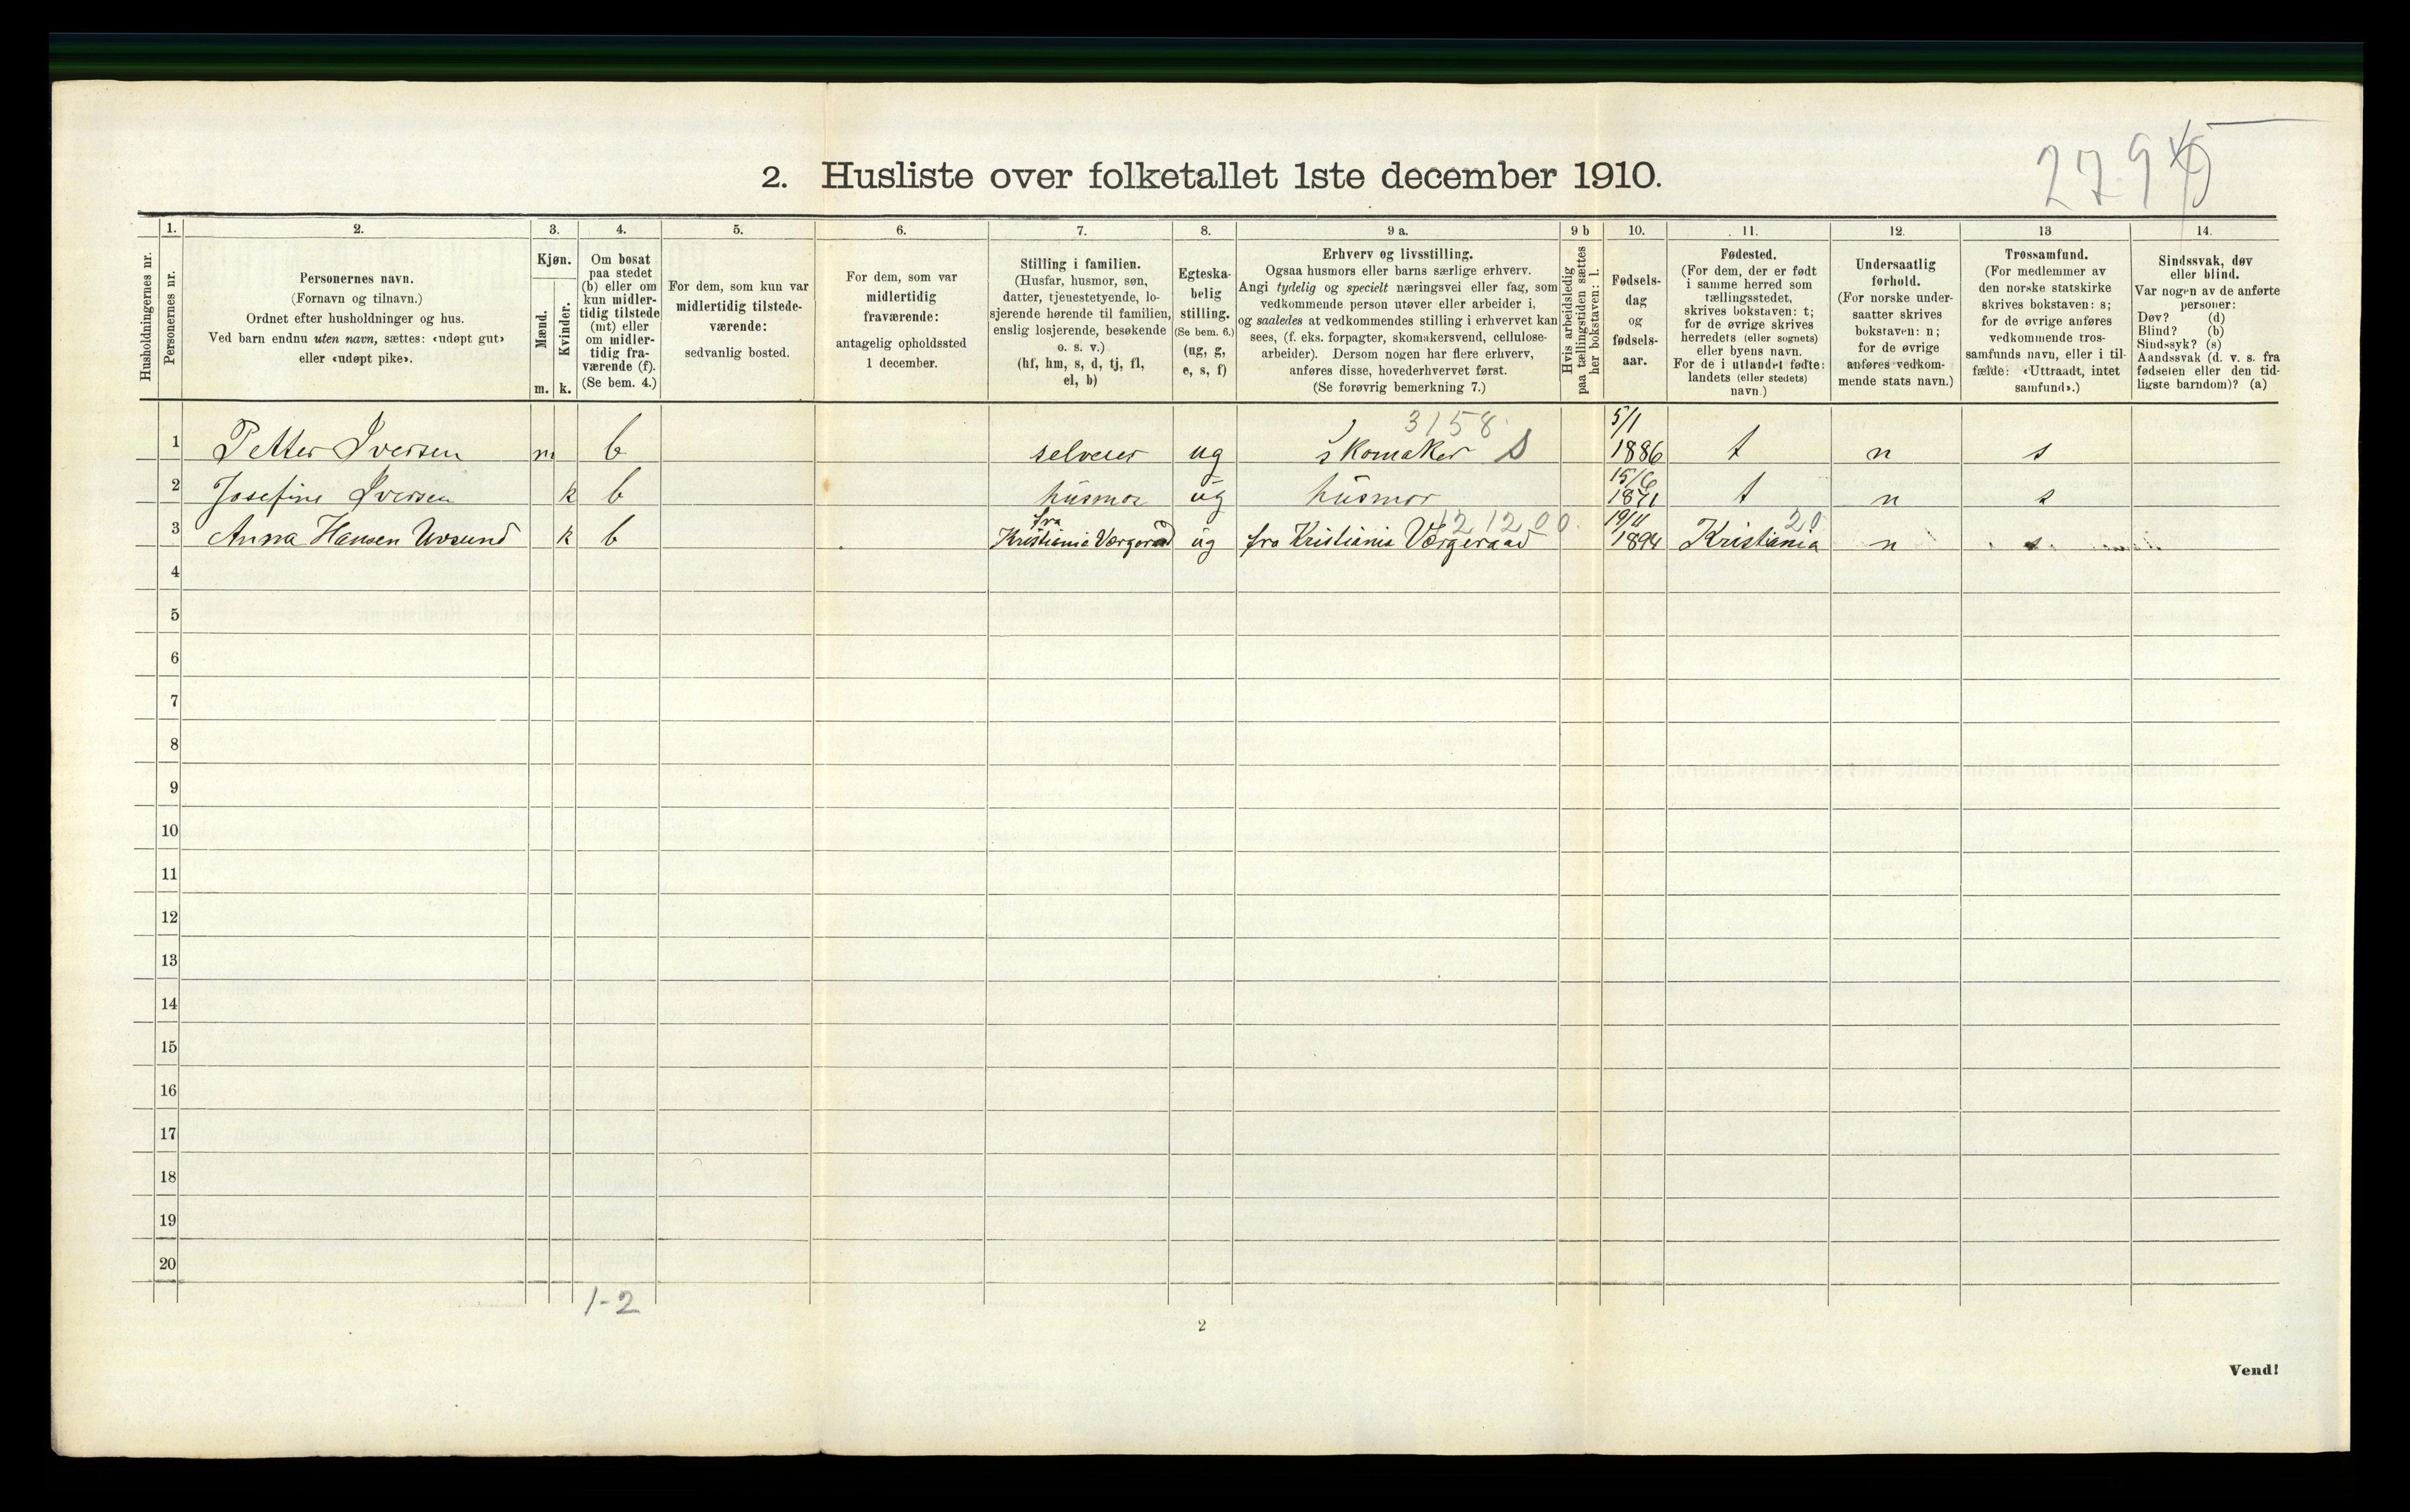 2. Husliste over folketallet 1ste december 1910.
279
Husholdningernes nr.
1.
Personernes nr.
2.
Personernes navn.
(Fornavn og tilnavn.)
Ordnet efter husholdninger og hus.
Ved barn endnu uten navn, sættes: «udøpt gut»
eller «udøpt pike».
3.
Kjøn.
Mænd.
m.
Kvinder.
k.
4.
Om bosat
paa stedet
(b) eller om
kun midler-
tidig tilstede
(mt) eller
om midler-
tidig fra-
værende (f).
(Se bem. 4.)
5.
For dem, som kun var
midlertidig tilstede-
værende:
sedvanlig bosted.
6.
For dem, som var
midlertidig
fraværende:
antagelig opholdssted
1 december.
7.
Stilling i familien.
(Husfar, husmor, søn,
datter, tjenestetyende, lo-
sjerende hørende til familien,
enslig losjerende, besøkende
o. s. v.)
(hf, hm, s, d, tj, fl,
el, b)
8.
Egteska-
belig
stilling.
(Se bem. 6.)
(ug, g,
e, s, f)
9 a.
Erhverv og livsstilling.
Ogsaa husmors eller barns særlige erhverv.
Angi tydelig og specielt næringsvei eller fag, som
vedkommende person utøver eller arbeider i,
og saaledes at vedkommendes stilling i erhvervet kan
sees, (f. eks. forpagter, skomakersvend, cellulose-
arbeider). Dersom nogen har flere erhverv,
anføres disse, hovederhvervet først.
(Se forøvrig bemerkning 7.)
9 b
Hvis arbeidsledig
paa tællingstiden sættes
her bokstaven: l.
10.
Fødsels-
dag
og
fødsels-
aar.
11.
Fødested.
(For dem, der er født
i samme herred som
tællingsstedet,
skrives bokstaven: t;
for de øvrige skrives
herredets (eller sognets)
eller byens navn.
For de i utlandet fødte:
landets (eller stedets)
navn.)
12.
Undersaatlig
forhold.
(For norske under-
saatter skrives
bokstaven: n;
for de øvrige
anføres vedkom-
mende stats navn.)
13
Trossamfund.
(For medlemmer av
den norske statskirke
skrives bokstaven: s;
for de øvrige anføres
vedkommende tros-
samfunds navn, eller i til-
fælde: «Uttraadt, intet
samfund».)
14.
Sindssvak, døv
eller blind.
Var nogen av de anførte
personer:
Døv? (d)
Blind? (b)
Sindssyk? (s)
Aandssvak (d. v. s. fra
fødselen eller den tid-
ligste barndom)? (a)
3158
5/1
1 Petter Iversen m b selveier ug skomaker S 1886 t n s
15/6
2 Josefine Iversen k b husmor ug husmor 1871 t n s
fra 121200 19/11 20
3 Anna Hansen k b Kristiania Værgeraad ug fra Kristiania Værgeraad 1894 Kristiania n s
4
5
6
7
8
9
10
11
12
13
14
15
16
17
18
19
20
1-2
2
Vend!